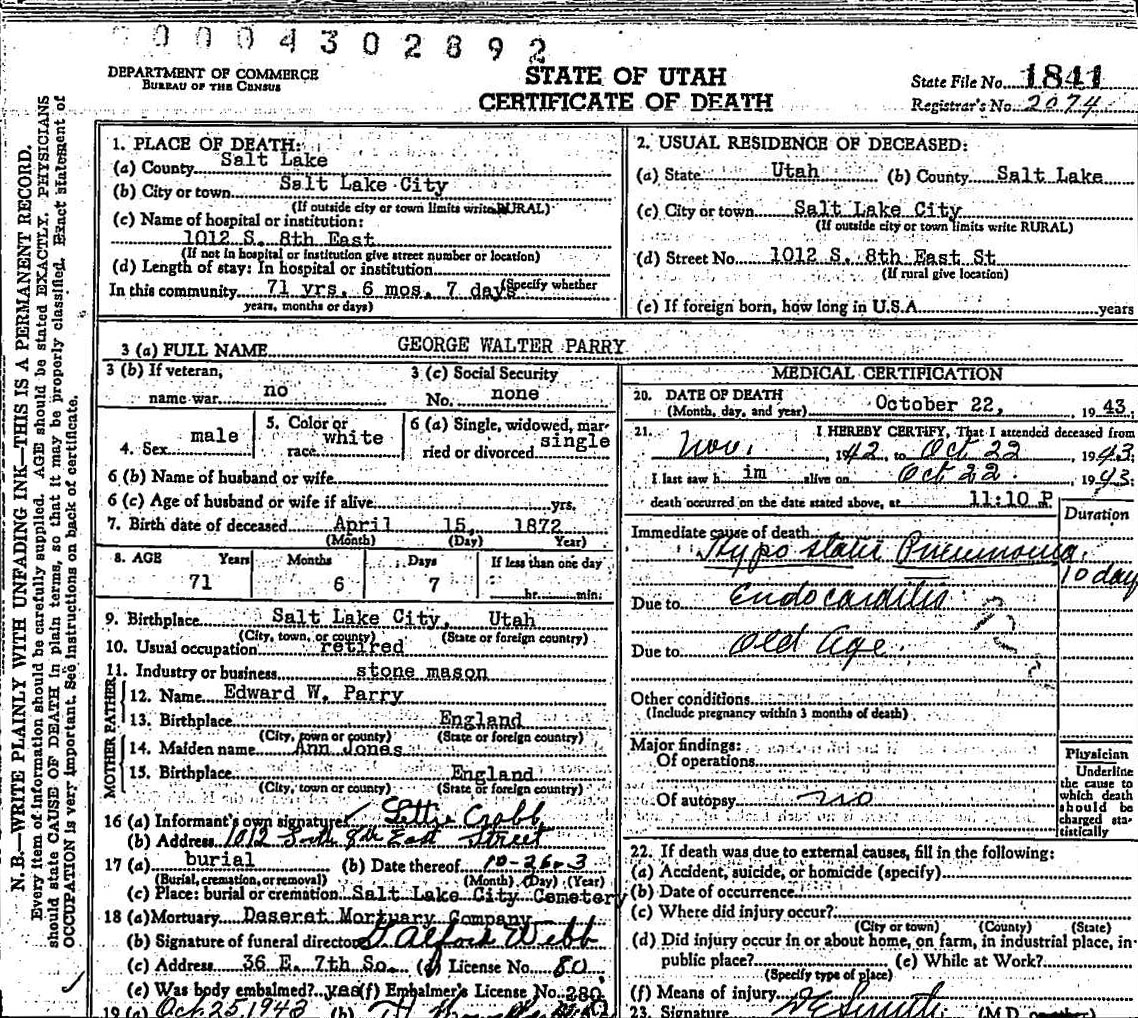 0004302892
DEPARTMENT OF COMMERCE
BUREAU OF THE CENSUS
STATE OF UTAH
CERTIFICATE OF DEATH
State File No. 1841
Registrar's No. 2074
N. B.—WRITE PLAINLY WITH UNFADING INK—THIS IS A PERMANENT RECORD.
Every item of information should be carefully supplied. AGE should be stated EXACTLY. PHYSICIANS
should state CAUSE OF DEATH in plain terms, so that it may be properly classified. Exact statement of
OCCUPATION is very important. See instructions on back of certificate.
1. PLACE OF DEATH:
(a) County Salt Lake
(b) City or town Salt Lake City
(If outside city or town limits write RURAL)
(c) Name of hospital or institution:
1012 S. 8th East
(If not in hospital or institution give street number or location)
(d) Length of stay: In hospital or institution
(Specify whether
In this community 71 yrs. 6 mos. 7 days
years, months or days)
2. USUAL RESIDENCE OF DECEASED:
(a) State Utah (b) County Salt Lake
(c) City or town Salt Lake City
(If outside city or town limits write RURAL)
(d) Street No. 1012 S. 8th East St
(If rural give location)
(e) If foreign born, how long in U.S.A. years
3 (a) FULL NAME GEORGE WALTER PARRY
3 (b) If veteran,
name war no
3 (c) Social Security
No. none
4. Sex male
5. Color or
race white
6 (a) Single, widowed, mar-
ried or divorced single
6 (b) Name of husband or wife
6 (c) Age of husband or wife if alive yrs.
7. Birth date of deceased April 15, 1872
(Month) (Day) Year)
8. AGE Years Months Days If less than one day
71 6 7 hr. min.
9. Birthplace Salt Lake City, Utah
(City, town, or county) (State or foreign country)
10. Usual occupation retired
11. Industry or business stone mason
FATHER
12. Name Edward W. Parry
13. Birthplace England
(City, town or county) (State or foreign country)
MOTHER
14. Maiden name Ann Jones
15. Birthplace England
(City, town or county) (State or foreign country)
16 (a) Informant's own signature Lettie Crabb
(b) Address 1012 South 8th East Street
17 (a) burial (b) Date thereof 10-26-3
(Burial, cremation, or removal) (Month) (Day) (Year)
(c) Place: burial or cremation Salt Lake City Cemetery
18 (a) Mortuary Deseret Mortuary Company
(b) Signature of funeral director Galford Webb
(c) Address 36 E. 7th So. (d) License No. 80
(e) Was body embalmed? yes (f) Embalmer's License No. 280
19 (a) Oct 25, 1943 (b)
MEDICAL CERTIFICATION
20. DATE OF DEATH
(Month, day, and year) October 22, 1943.
21. I HEREBY CERTIFY, That I attended deceased from
Nov. , 1942, to Oct 22 1943;
I last saw h im alive on Oct 22. 1943;
death occurred on the date stated above, at 11:10 P
Duration
Immediate cause of death
Hypostatic Pneumonia.
10 day
Due to Endocarditis
Due to Old Age.
Other conditions
(Include pregnancy within 3 months of death)
Major findings:
Of operations
Of autopsy no
Physician
Underline
the cause to
which death
should be
charged sta-
tistically
22. If death was due to external causes, fill in the following:
(a) Accident, suicide, or homicide (specify)
(b) Date of occurrence
(c) Where did injury occur?
(City or town) (County) (State)
(d) Did injury occur in or about home, on farm, in industrial place, in
public place? (e) While at Work?
(Specify type of place)
(f) Means of injury
23. Signature Smith (M.D. or other)